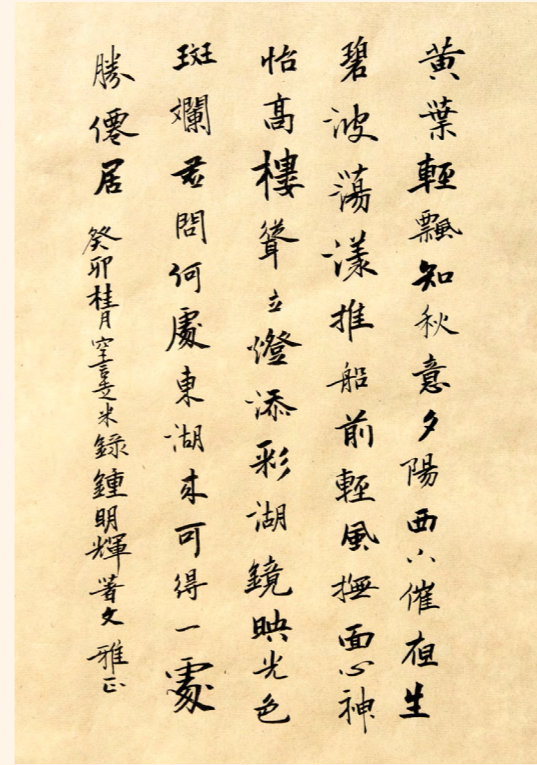 黄葉輕飄知秋意夕陽西下催夜生
碧波蕩漾推船前輕風撫面心神
怡高樓聳立燈添彩湖鏡映光色
斑斕若問何處東湖來可得一處
勝僊居 癸卯桂月空言走米錄鍾明輝箸文 雅正